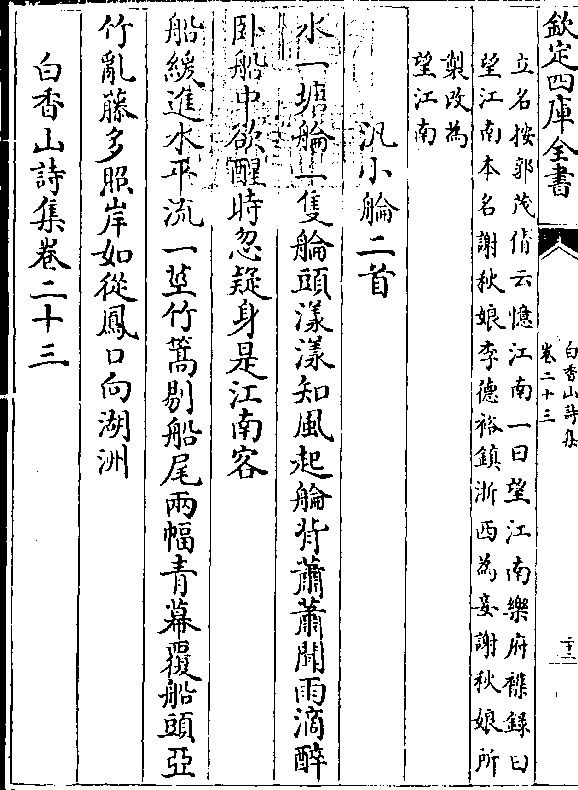 欽定四庫全書
白香山詩集
卷二十三
立名按郭茂倩云憶江南一曰望江南樂府襍錄曰
望江南本名謝秋娘李德裕鎮浙西為妾謝秋娘所
製改為
望江南
汎小䑳二首
水一塘䑳一隻䑳頭漾漾知風起䑳背蕭蕭聞雨滴醉
卧船中欲醒時忽疑身是江南客
船緩進水平流一莖竹篙剔船尾兩幅青幕覆船頭亞
竹亂藤多照岸如從鳳口向湖洲
白香山詩集卷二十三